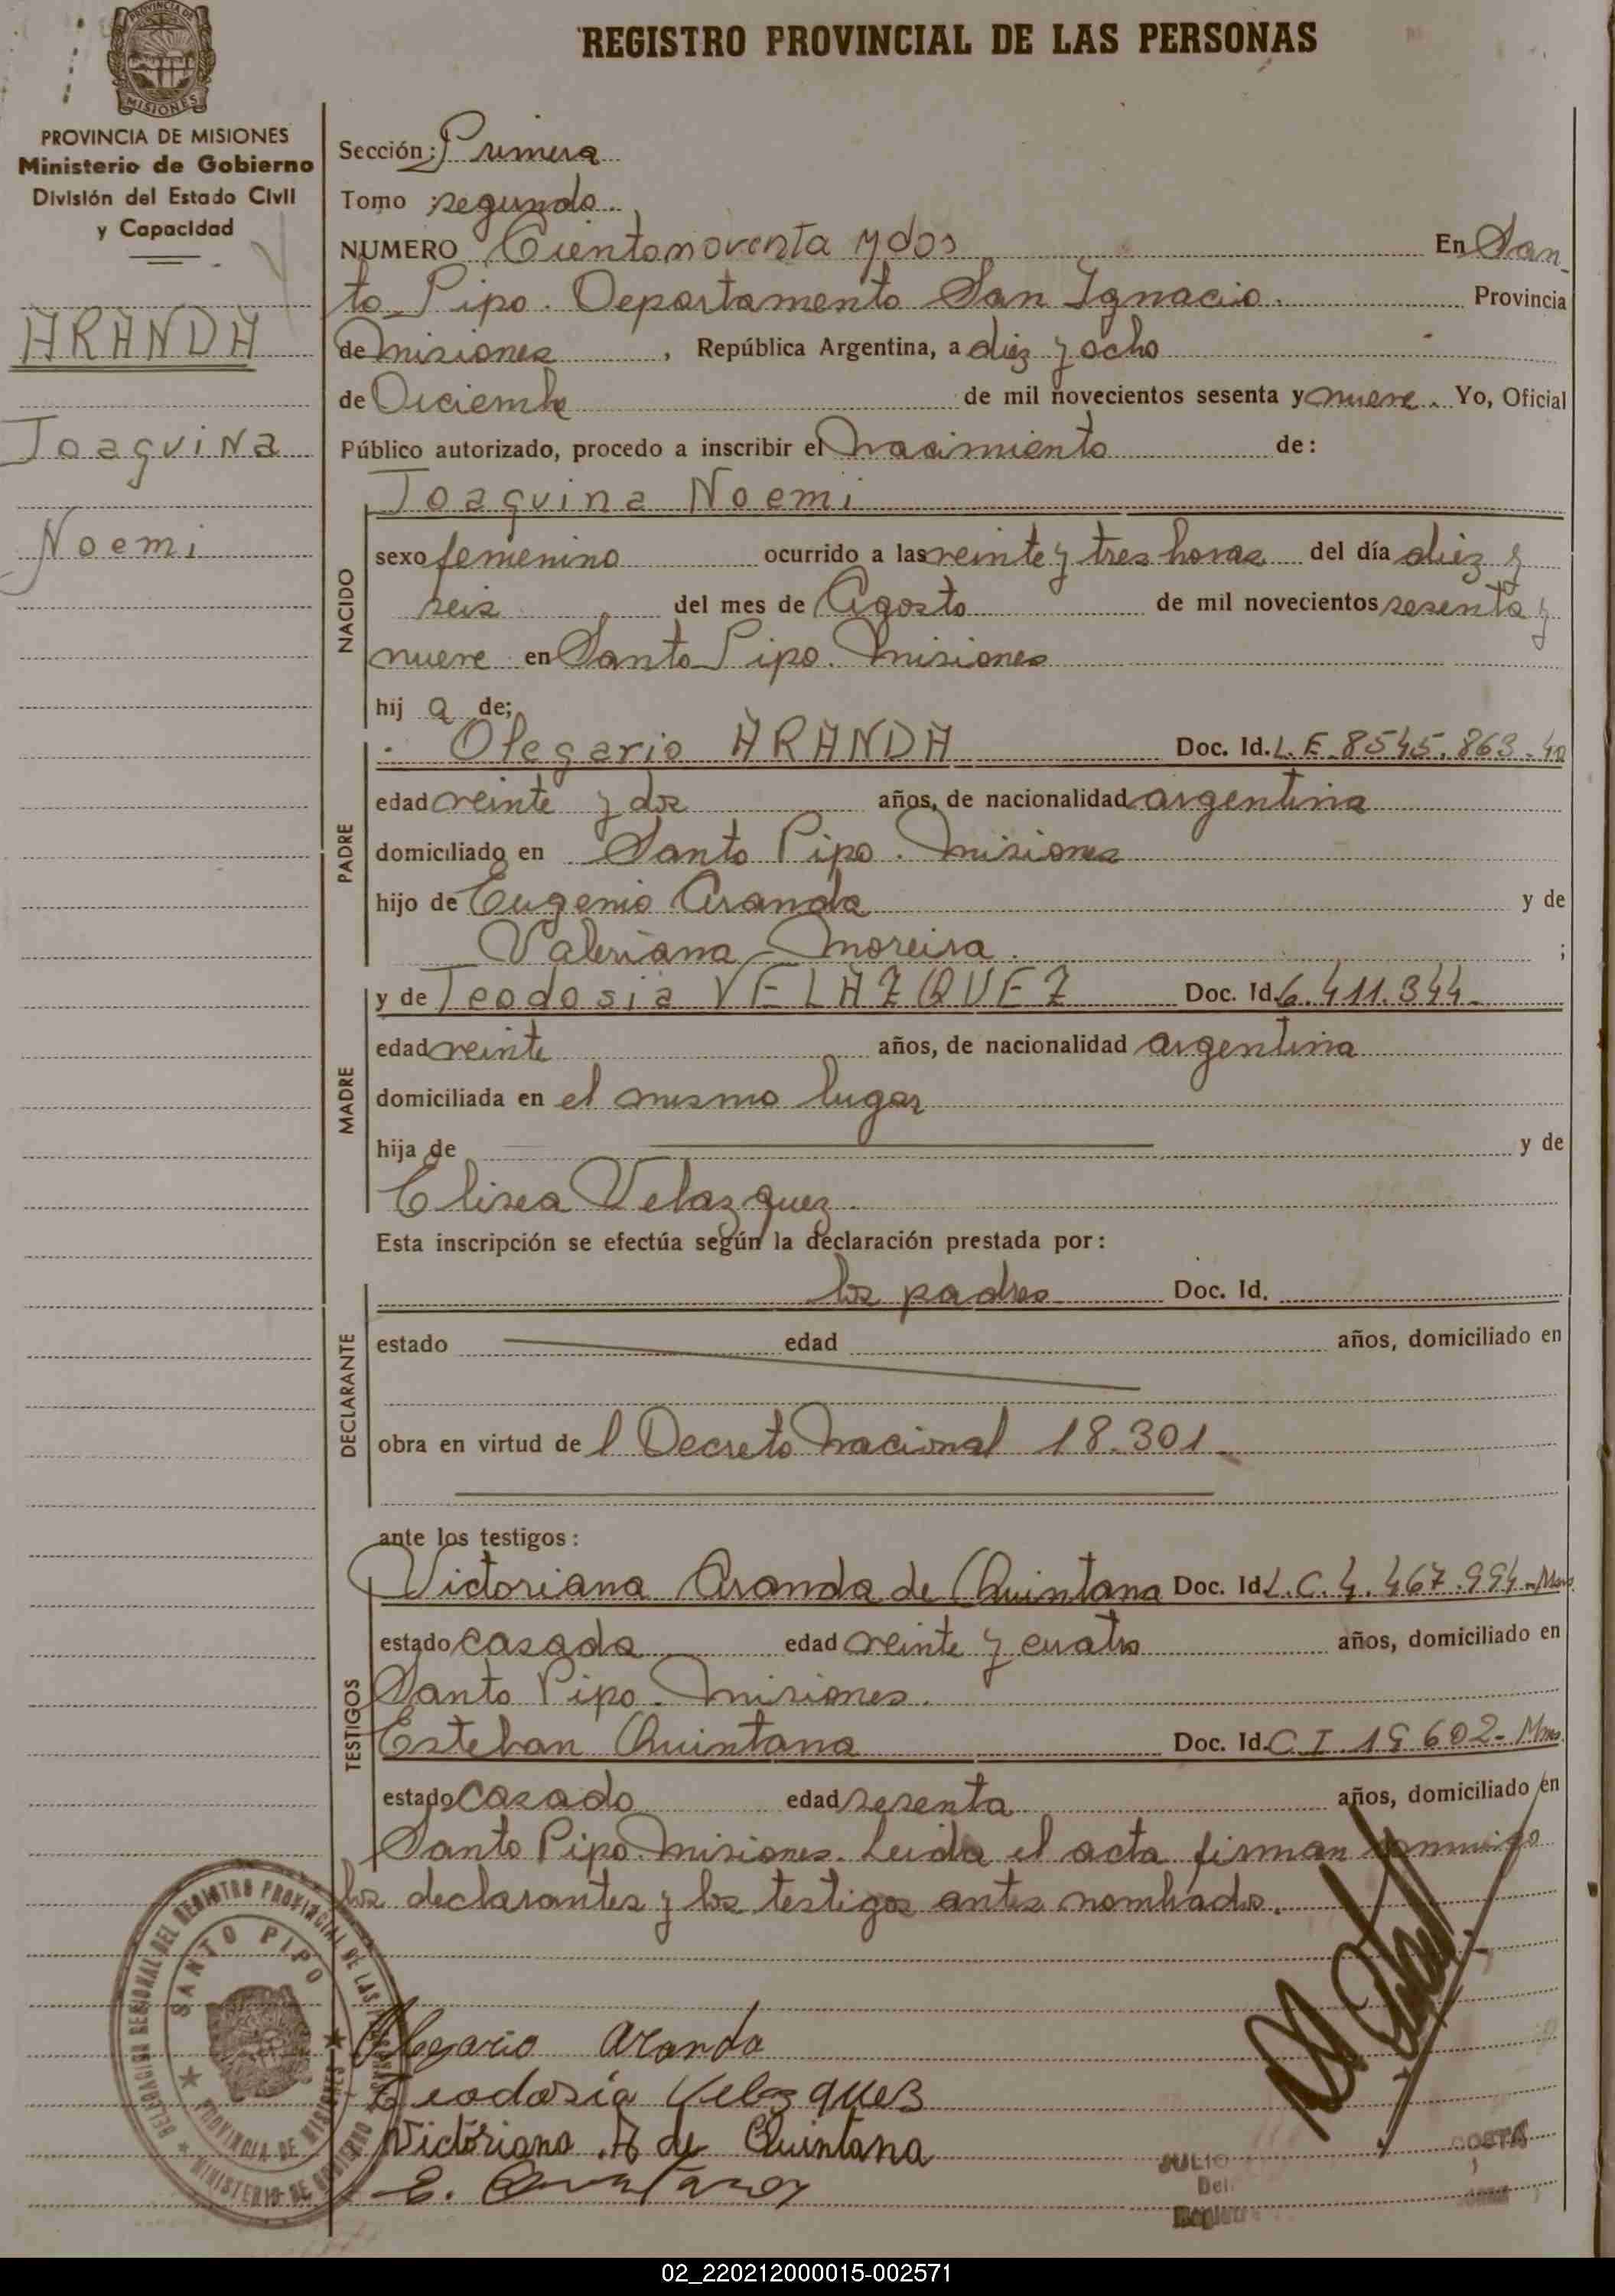 PROVINCIA DE
MISIONES
PROVINCIA DE MISIONES
Ministerio de Gobierno
División del Estado Civil
y Capacidad
ARANDA
Joaquina
Noemi
REGISTRO PROVINCIAL DE LAS PERSONAS
Sección: Primera
Tomo : segundo
NUMERO Ciento noventa y dos En San-
to Pipo. Departamento San Ignacio. Provincia
de Misiones , República Argentina, a diez y ocho
de Diciembre de mil novecientos sesenta y nueve. Yo, Oficial
Público autorizado, procedo a inscribir el nacimiento de:
NACIDO
Joaquina Noemi
sexo femenino ocurrido a las veinte y tres horas del día diez y
seis del mes de Agosto de mil novecientos sesenta y
nueve en Santo Pipo. Misiones
hij a de;
PADRE
Olegario ARANDA Doc. Id. L.E. 8545.863
edad veinte y dos años, de nacionalidad argentina
domiciliado en Santo Pipo. Misiones
hijo de Eugenio Aranda y de
Valeriana Moreira. ;
MADRE
y de Teodosia VELAZQUEZ Doc. Id. 6.411.344.
edad veinte años, de nacionalidad argentina
domiciliada en el mismo lugar
hija de y de
Elisea Velazquez.
Esta inscripción se efectúa según la declaración prestada por:
DECLARANTE
los padres Doc. Id.
estado edad años, domiciliado en
obra en virtud de l Decreto Nacional 18.301.
ante los testigos:
TESTIGOS
Victoriana Aranda de Quintana Doc. Id. L.C. 4.467.994 - Mnes
estado casada edad veinte y cuatro años, domiciliado en
Santo Pipo. Misiones.
Esteban Quintana Doc. Id. C.I. 19602- Mnes.
estado casado edad sesenta años, domiciliado en
Santo Pipo. Misiones. Leida el acta firman conmigo
los declarantes y los testigos antes nombrados.
DELEGACION REGIONAL DEL REGISTRO PROVINCIAL DE LAS PERSONAS
MINISTERIO DE GOBIERNO
SANTO PIPO
PROVINCIA DE MISIONES
Olegario Aranda
Teodosia Velazquez
Victoriana A de Quintana
E. Quintana
JULIO COSTA
Del.
02_220212000015-002571